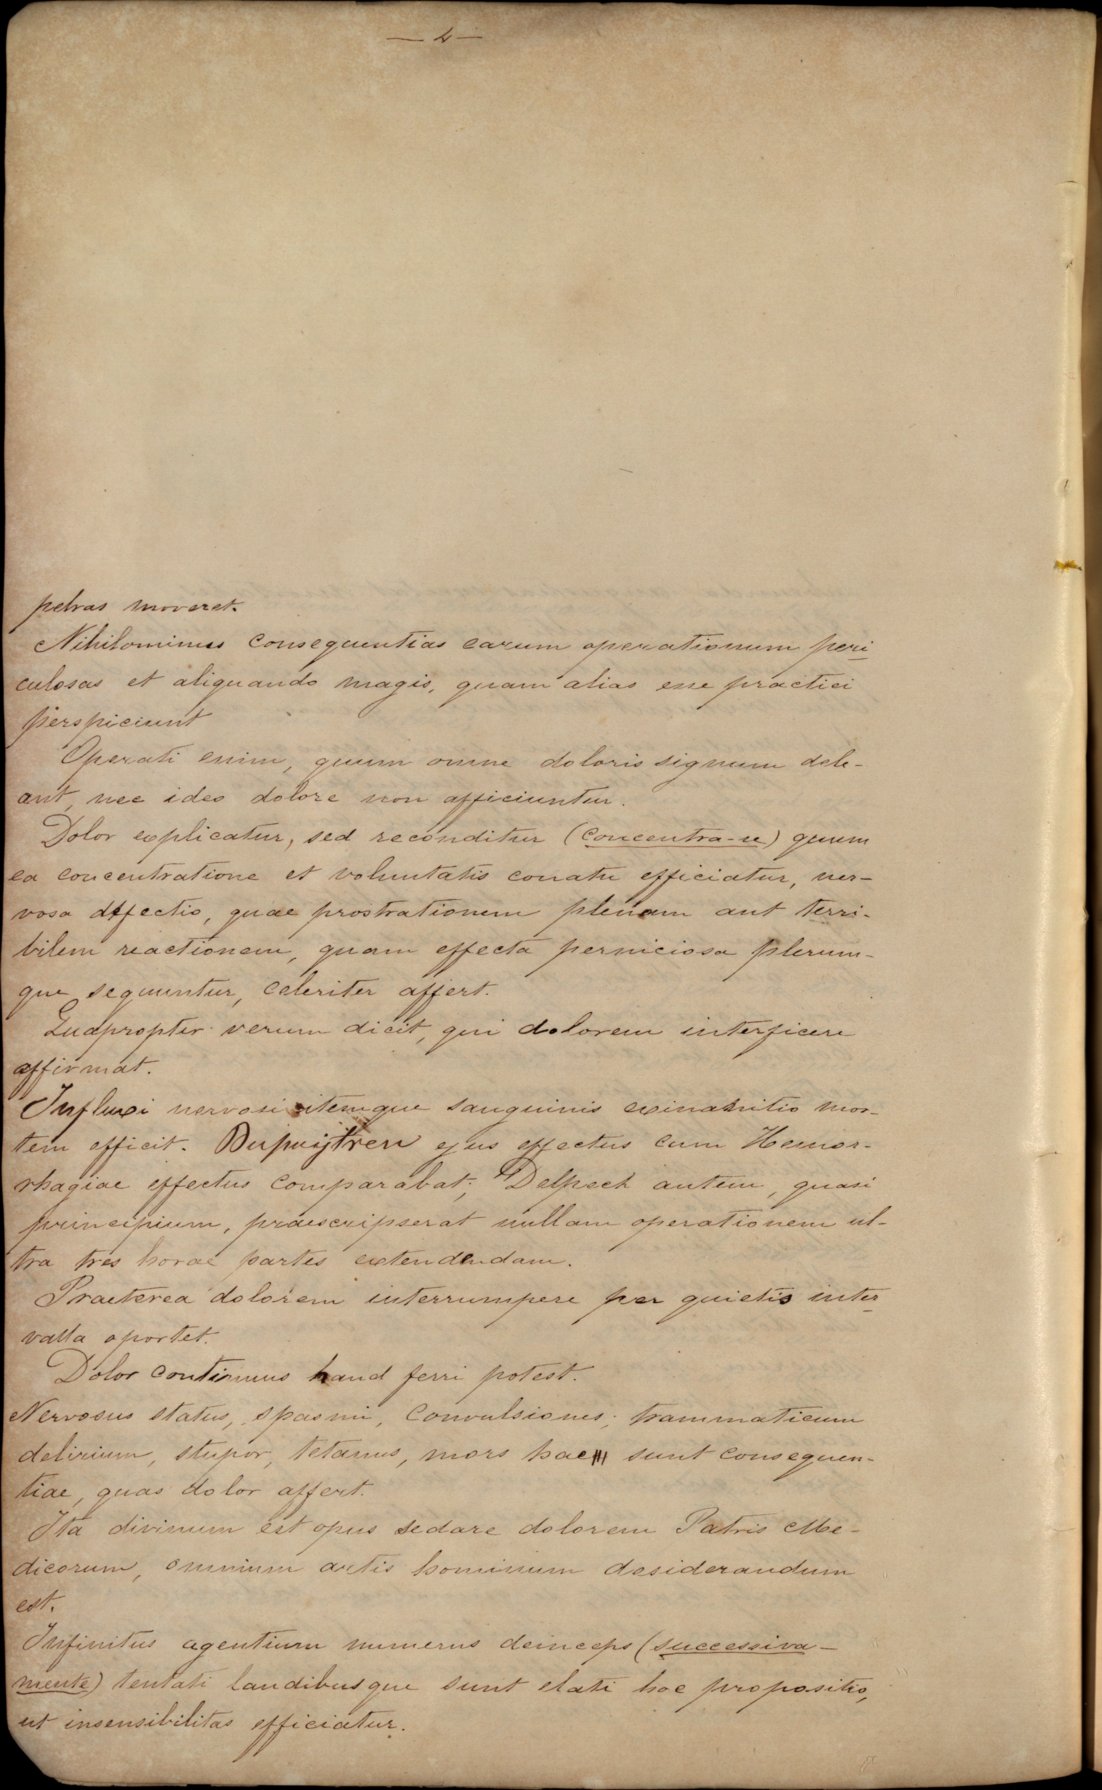 — 2 —
petras moveret.
Nihilominus consequentias earum operationum peri
culosas et aliquando magis, quam alias esse practici
perspiciunt
Operati enim, quum omne doloris signum dele-
ant, nec ideo dolore non afficiuntur.
Dolor explicatur, sed reconditur (concentra-se) quum
ea concentratione et voluntatis conatu efficiatur, ner-
vosa affectio, quae prostrationem plenam aut terri-
bilem reactionem, quam effecta perniciosa plerum-
que sequuntur, celeriter affert.
Quapropter verum dicit, qui dolorem interficere
affirmat.
Influxi nervosi itemque sanguinis exinanitio mor-
tem efficit. Dupuijtren ejus effectus cum Hemor-
rhagiae effectus comparabat; Delpech autem, quasi
principium, praescripserat nullam operationem ul-
tra tres horae partes extendendam.
Praeterea dolorem interrumpere per quietis inter
valla oportet.
Dolor continuus haud ferri potest.
Nervosus status, spasmi, convulsiones; trammaticum
delirium, stupor, tetanus, mors hae sunt consequen-
tiae, quas dolor affert.
Ita divinum est opus sedare dolorem Patris Me-
dicorum, omnium artis hominum desiderandum
est.
Infinitus agentium numerus deinceps (successiva-
mente) tentati laudibusque sunt elati hoc proposito,
ut insensibilitas efficiatur.